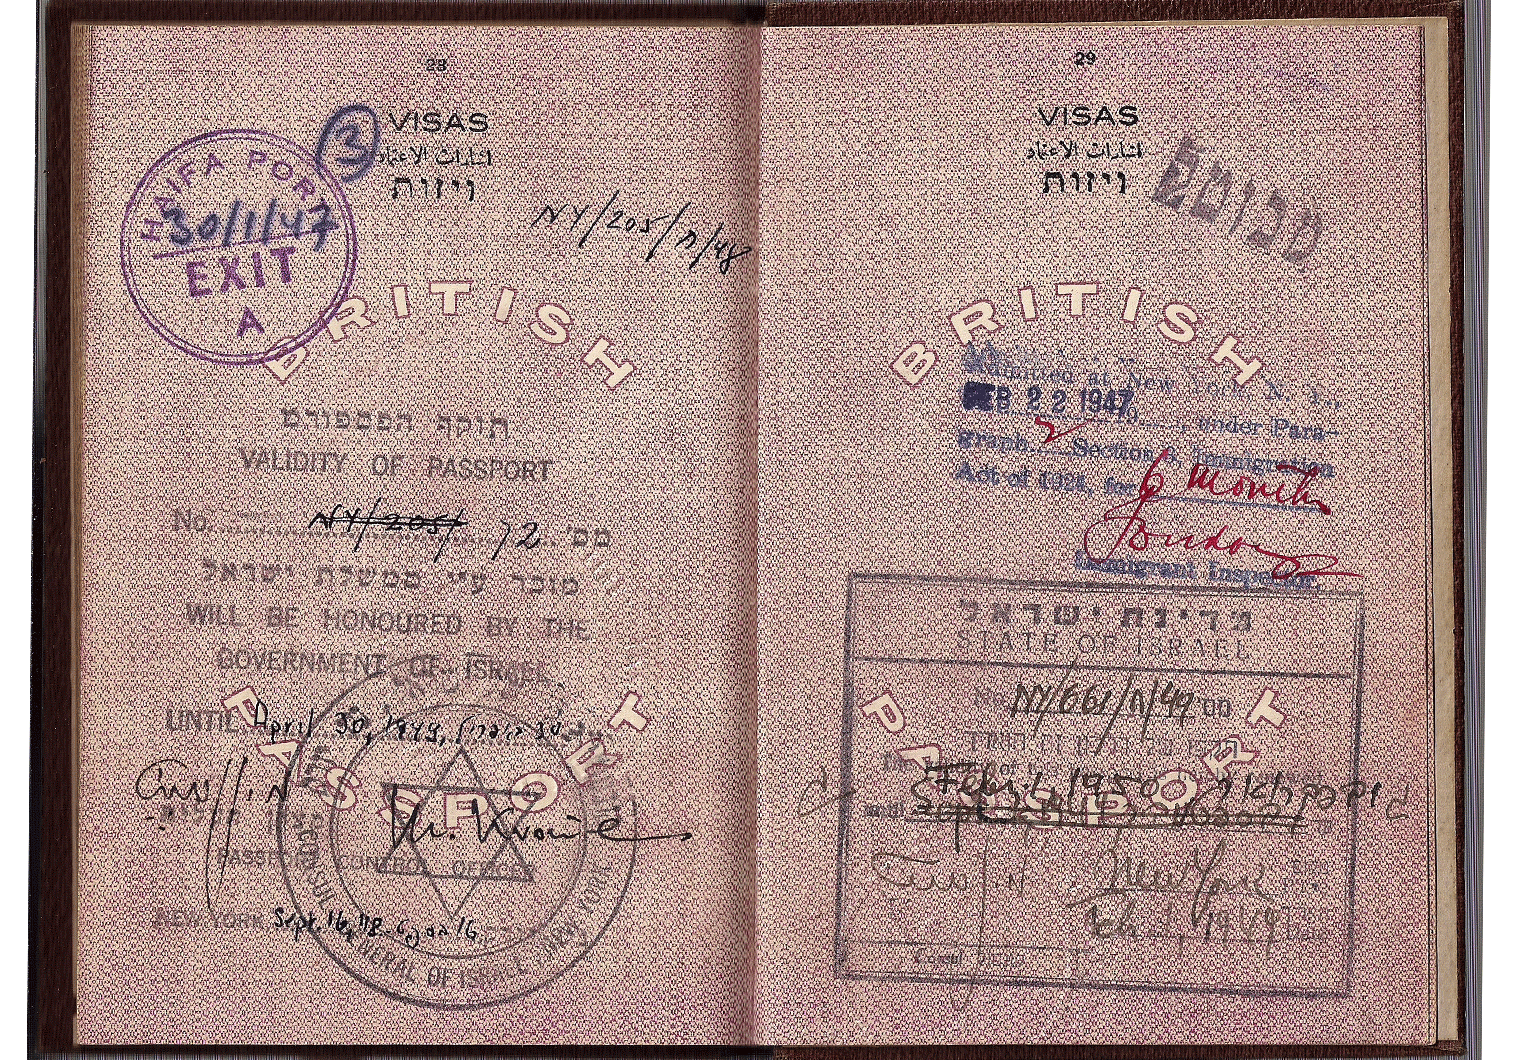 28
VISAS
اشارات الاعتماد
ויזות
3
HAIFA PORT
30/1/47
EXIT
A
NY/205/ח/48
BRITISH
PASSPORT
תוקף הפספורט
VALIDITY OF PASSPORT
No. NY/205/ 72 מס'
מוכר ע"י ממשלת ישראל
WILL BE HONOURED BY THE
GOVERNMENT OF ISRAEL.
UNTIL April 30, 1949,
PASSPORT CONTROL OFFICER
NEW YORK Sept. 16, '48
CONSULATE GENERAL OF ISRAEL NEW YORK
29
VISAS
اشارات الاعتماد
ויזות
מבוטל
BRITISH
PASSPORT
Admitted at New York, N. Y.,
FEB 22 1947 19 under Para-
graph 2 Section 3, Immigration
Act of 1924, for 6 months
Immigrant Inspector.
מדינת ישראל
STATE OF ISRAEL
No. NY/661/ח/49
Febr. 1, 1950
New York
Feb. 1949